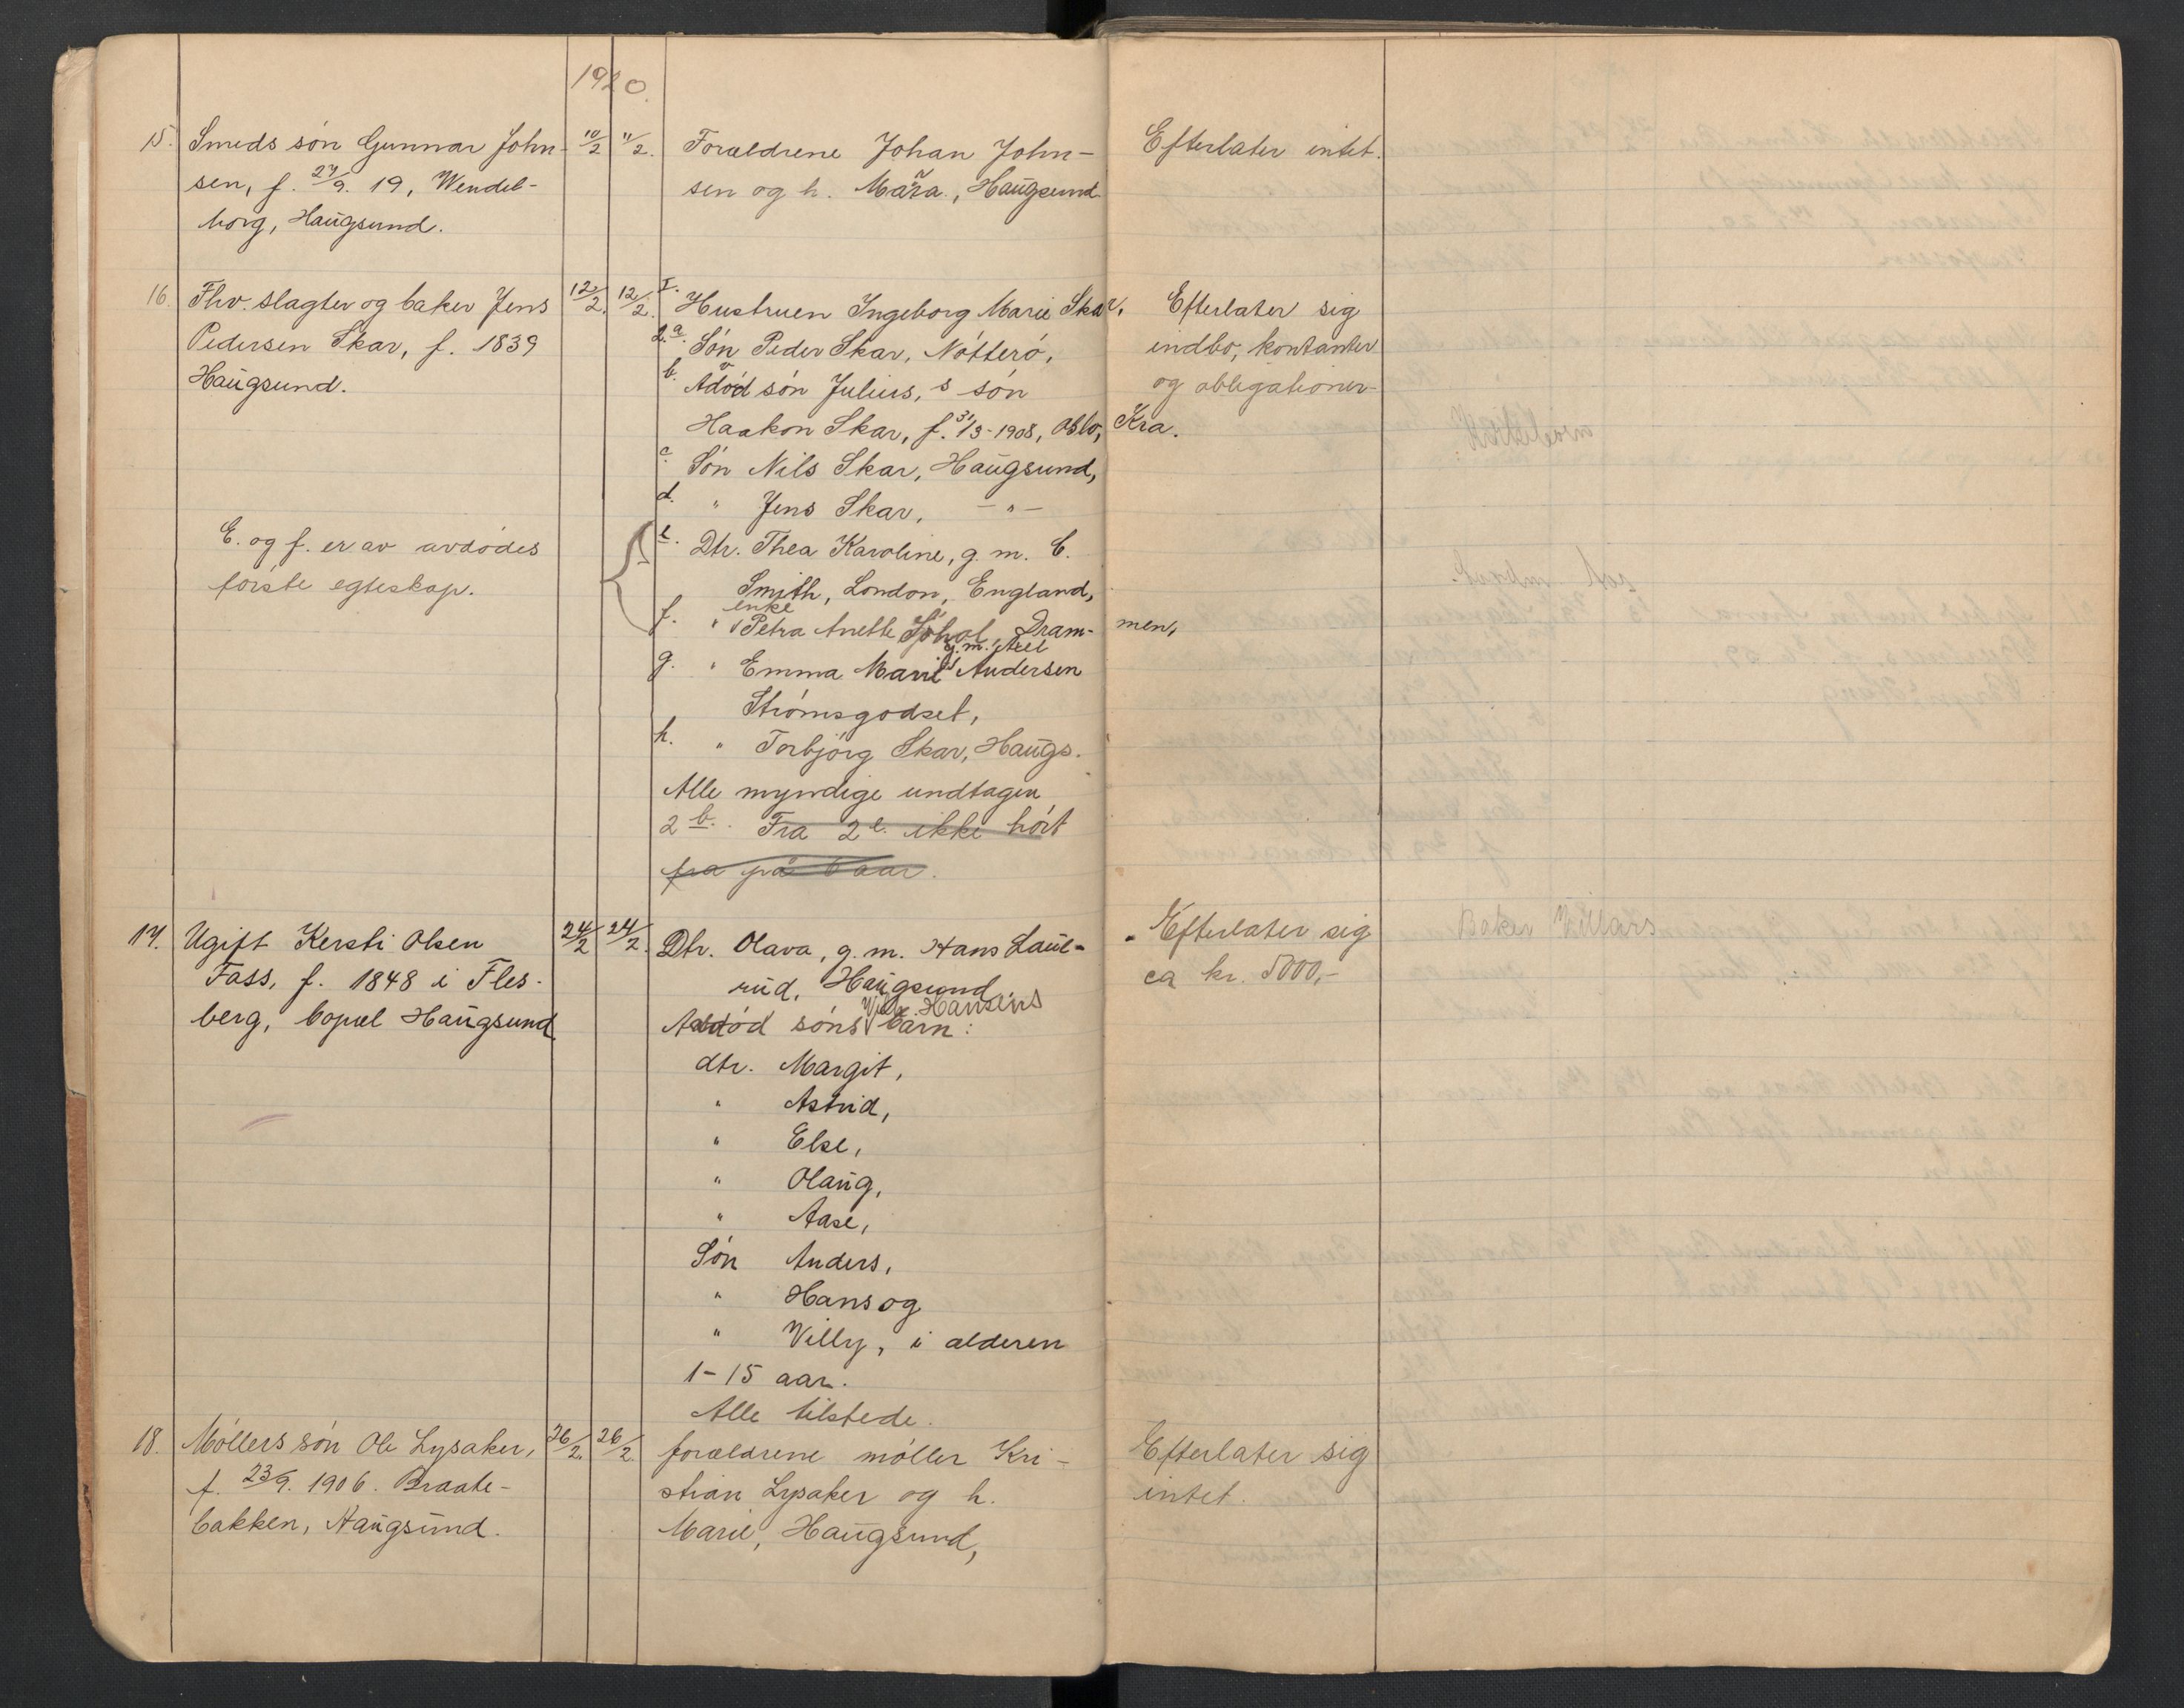 1920.
15. Smeds søn Gunnar John-
sen, f. 27/9. 19, Wendel-
borg, Haugsund.
10/2 11/2.
Forældrene Johan John-
sen og h. Mara, Haugsund
Efterlater intet.
16. Fhv. slagter og baker Jens
Pedersen Skar, f. 1839
Haugsund.
12/2. 12/2.
1. Hustruen Ingeborg Marie Skar,
2.a. Søn Peder Skar, Nøtterø,
b. Advød søn Julius, s søn
Haakon Skar, f. 31/3-1908, Oslo, Kra.
c. Søn Nils Skar, Haugsund,
d. " Jens Skar, - " -
e. Dtr. Thea Karoline, g. m. C.
Smith, London, England,
f. " enke Petra Anette Dram- men,
g. " Emma Marie g. m. Andersen
Strømsgodset,
h. " Torbjørg Skar, Haugs.
Alle myndige undtagen
2 b. Fra 2 e. ikke hørt
fra på 6 aar.
Efterlater sig
indbo, kontanter
og obligationer
E. og f. er av avdødes
første egteskap.
17. Ugift Kersti Olsen
Fass, f. 1848 i Fles-
berg, bopæl Haugsund
24/2 24/2.
Dtr. Olava, g. m. Hans Laue-
rud, Haugsund.
Avdød søns Hansens barn:
dtr. Margit,
" Astrid,
" Else,
" Olaug,
" Aase,
Søn Anders,
" Hans og
" Villy, i alderen
1-15 aar.
Alle tilstede.
Efterlater sig
ca kr. 5000,-
Baker Willars
18. Møllers søn Ole Lysaker,
f. 23/9. 1906. Braate-
bakken, Haugsund.
26/2. 26/2.
forældrene møller Kri-
stian Lysaker og h.
Marie, Haugsund,
Efterlater sig
intet.